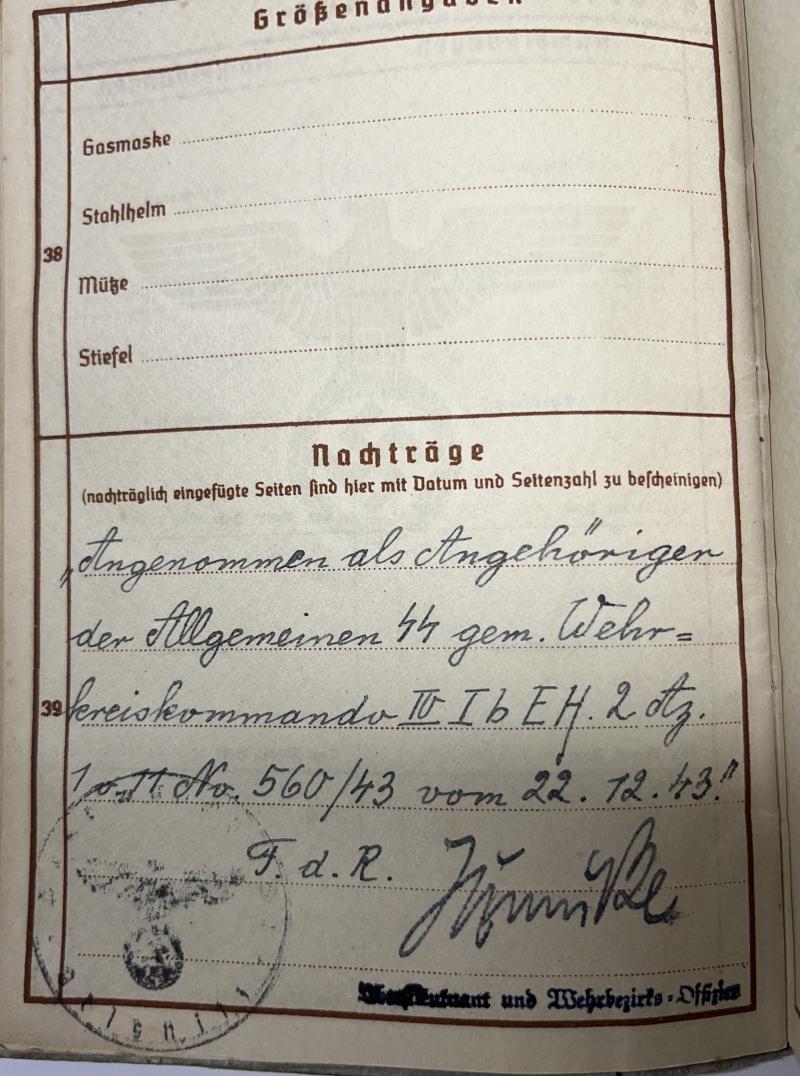 Größenangaben
Gasmaske
Stahlhelm
38
Mütze
Stiefel
Nachträge
(nachträglich eingefügte Seiten sind hier mit Datum und Seitenzahl zu bescheinigen)
„Angenommen als Angehöriger
der Allgemeinen ᛋᛋ gem. Wehr=
39
kreiskommando IV I b E H. 2 Az.
No. 560/43 vom 22. 12. 43."
F. d. R.
und Wehrbezirks-Offizier